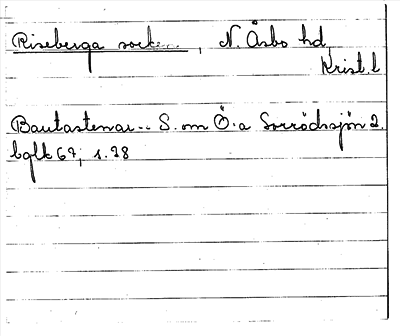 Riseberga sock..., N. Åsbo hd
Krist. l
Bautastenar.. S. om Ö.a Sorrödssjön 2.
bglk 67, s. 38